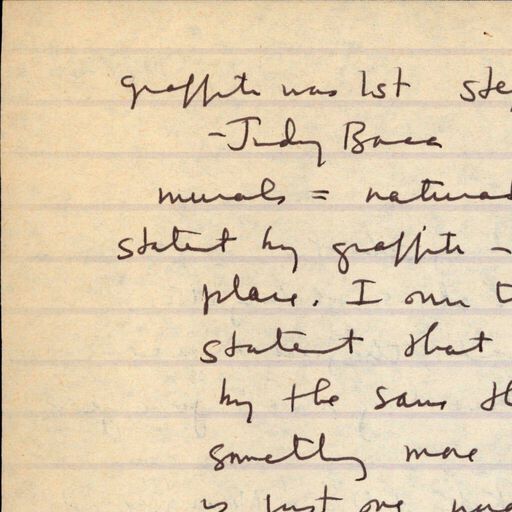 graffiti was 1st ste
- Judy Baca
murals = natural
statent by graffiti -
place. I own t
statent that
by the same th
something more
is just one